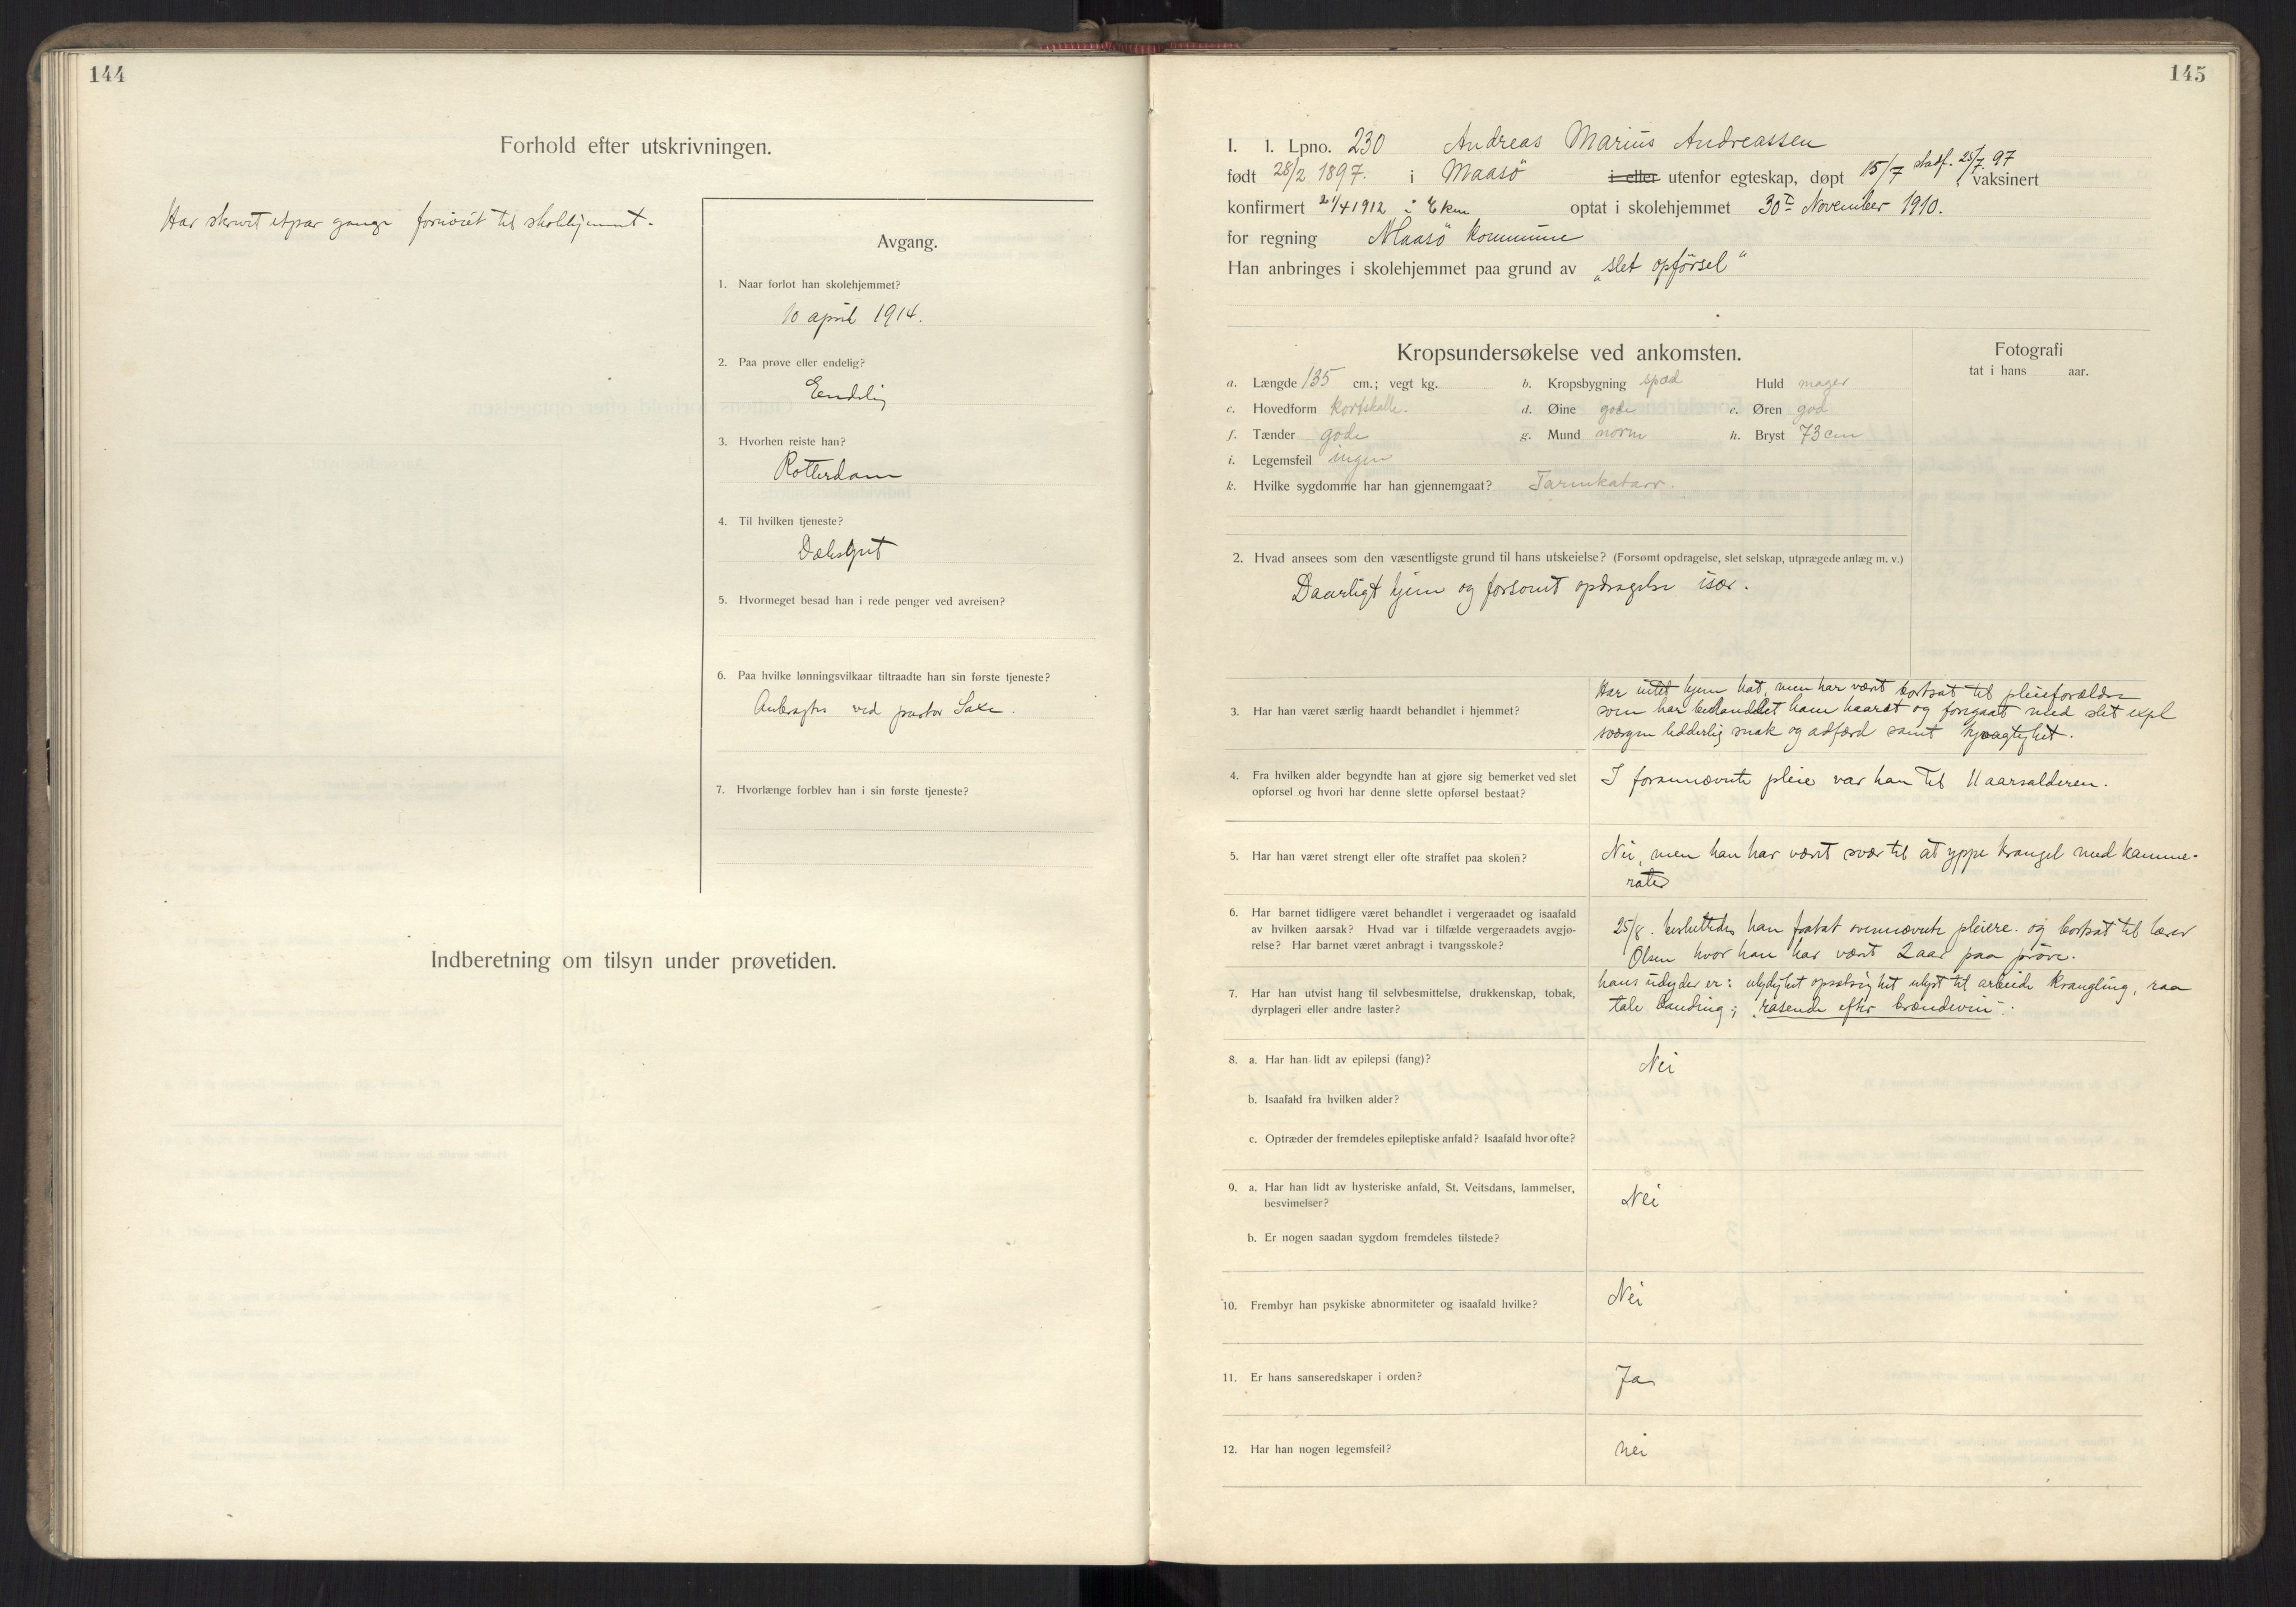 144
Forhold efter utskrivningen.
Har skrevet etpar gange fornöiet til skolehjemmet.
Avgang.
1. Naar forlot han skolehjemmet?
10 april 1914.
2. Paa prøve eller endelig?
Endelig
3. Hvorhen reiste han?
Rotterdam
4. Til hvilken tjeneste?
Dæksgut
5. Hvormeget besad han i rede penger ved avreisen?
6. Paa hvilke lønningsvilkaar tiltraadte han sin første tjeneste?
Anbragtes ved pastor Saxe.
7. Hvorlænge forblev han i sin første tjeneste?
Indberetning om tilsyn under prøvetiden.
145
I. 1. Lpno. 230 Andreas Marius Andreassen
født 28/2 1897. i Maasö i eller utenfor egteskap, døpt 15/7 stadf. 25/7. 97, vaksinert
konfirmert 21/4 1912 i Ekm optat i skolehjemmet 30te November 1910.
for regning Maasö kommune
Han anbringes i skolehjemmet paa grund av „slet opförsel"
Kropsundersøkelse ved ankomsten.
Fotografi
tat i hans aar.
a. Længde 135 cm.; vegt kg. b. Kropsbygning spæd Huld mager
c. Hovedform kortskalle. d. Øine gode e. Øren god
f. Tænder gode g. Mund norm h. Bryst 73 cm
i. Legemsfeil ingen
k. Hvilke sygdomme har han gjennemgaat? Tarmkatarr.
2. Hvad ansees som den væsentligste grund til hans utskeielse? (Forsømt opdragelse, slet selskap, utprægede anlæg m. v.)
Daarligt hjem og forsömt opdragelse især.
3. Har han været særlig haardt behandlet i hjemmet?
Har intet hjem hat, men har været bortsat til pleieforældre
som har behandlet ham haardt og foregaat med slet expl
sværgen lidderlig snak og adfærd samt
4. Fra hvilken alder begyndte han at gjøre sig bemerket ved slet
opførsel og hvori har denne slette opførsel bestaat?
I forannævnte pleie var han til 11 aarsalderen.
5. Har han været strengt eller ofte straffet paa skolen?
Nei, men han har været svær til at yppe krangel med kamme-
rater
6. Har barnet tidligere været behandlet i vergeraadet og isaafald
av hvilken aarsak? Hvad var i tilfælde vergeraadets avgjø-
relse? Har barnet været anbragt i tvangsskole?
25/8. besluttedes han fratat ovennævnte pleiere. og bortsat til lærer
Olsen hvor han har været 2 aar paa pröve.
7. Har han utvist hang til selvbesmittelse, drukkenskap, tobak,
dyrplageri eller andre laster?
hans udyder er: ulydighet opsætsighet ulyst til arbeide krangling, raa
tale banding; „rasende efter brændevin".
8. a. Har han lidt av epilepsi (fang)?
Nei
b. Isaafald fra hvilken alder?
c. Optræder der fremdeles epileptiske anfald? Isaafald hvor ofte?
9. a. Har han lidt av hysteriske anfald, St. Veitsdans, lammelser,
besvimelser?
Nei
b. Er nogen saadan sygdom fremdeles tilstede?
10. Frembyr han psykiske abnormiteter og isaafald hvilke?
Nei
11. Er hans sanseredskaper i orden?
Ja
12. Har han nogen legemsfeil?
nei